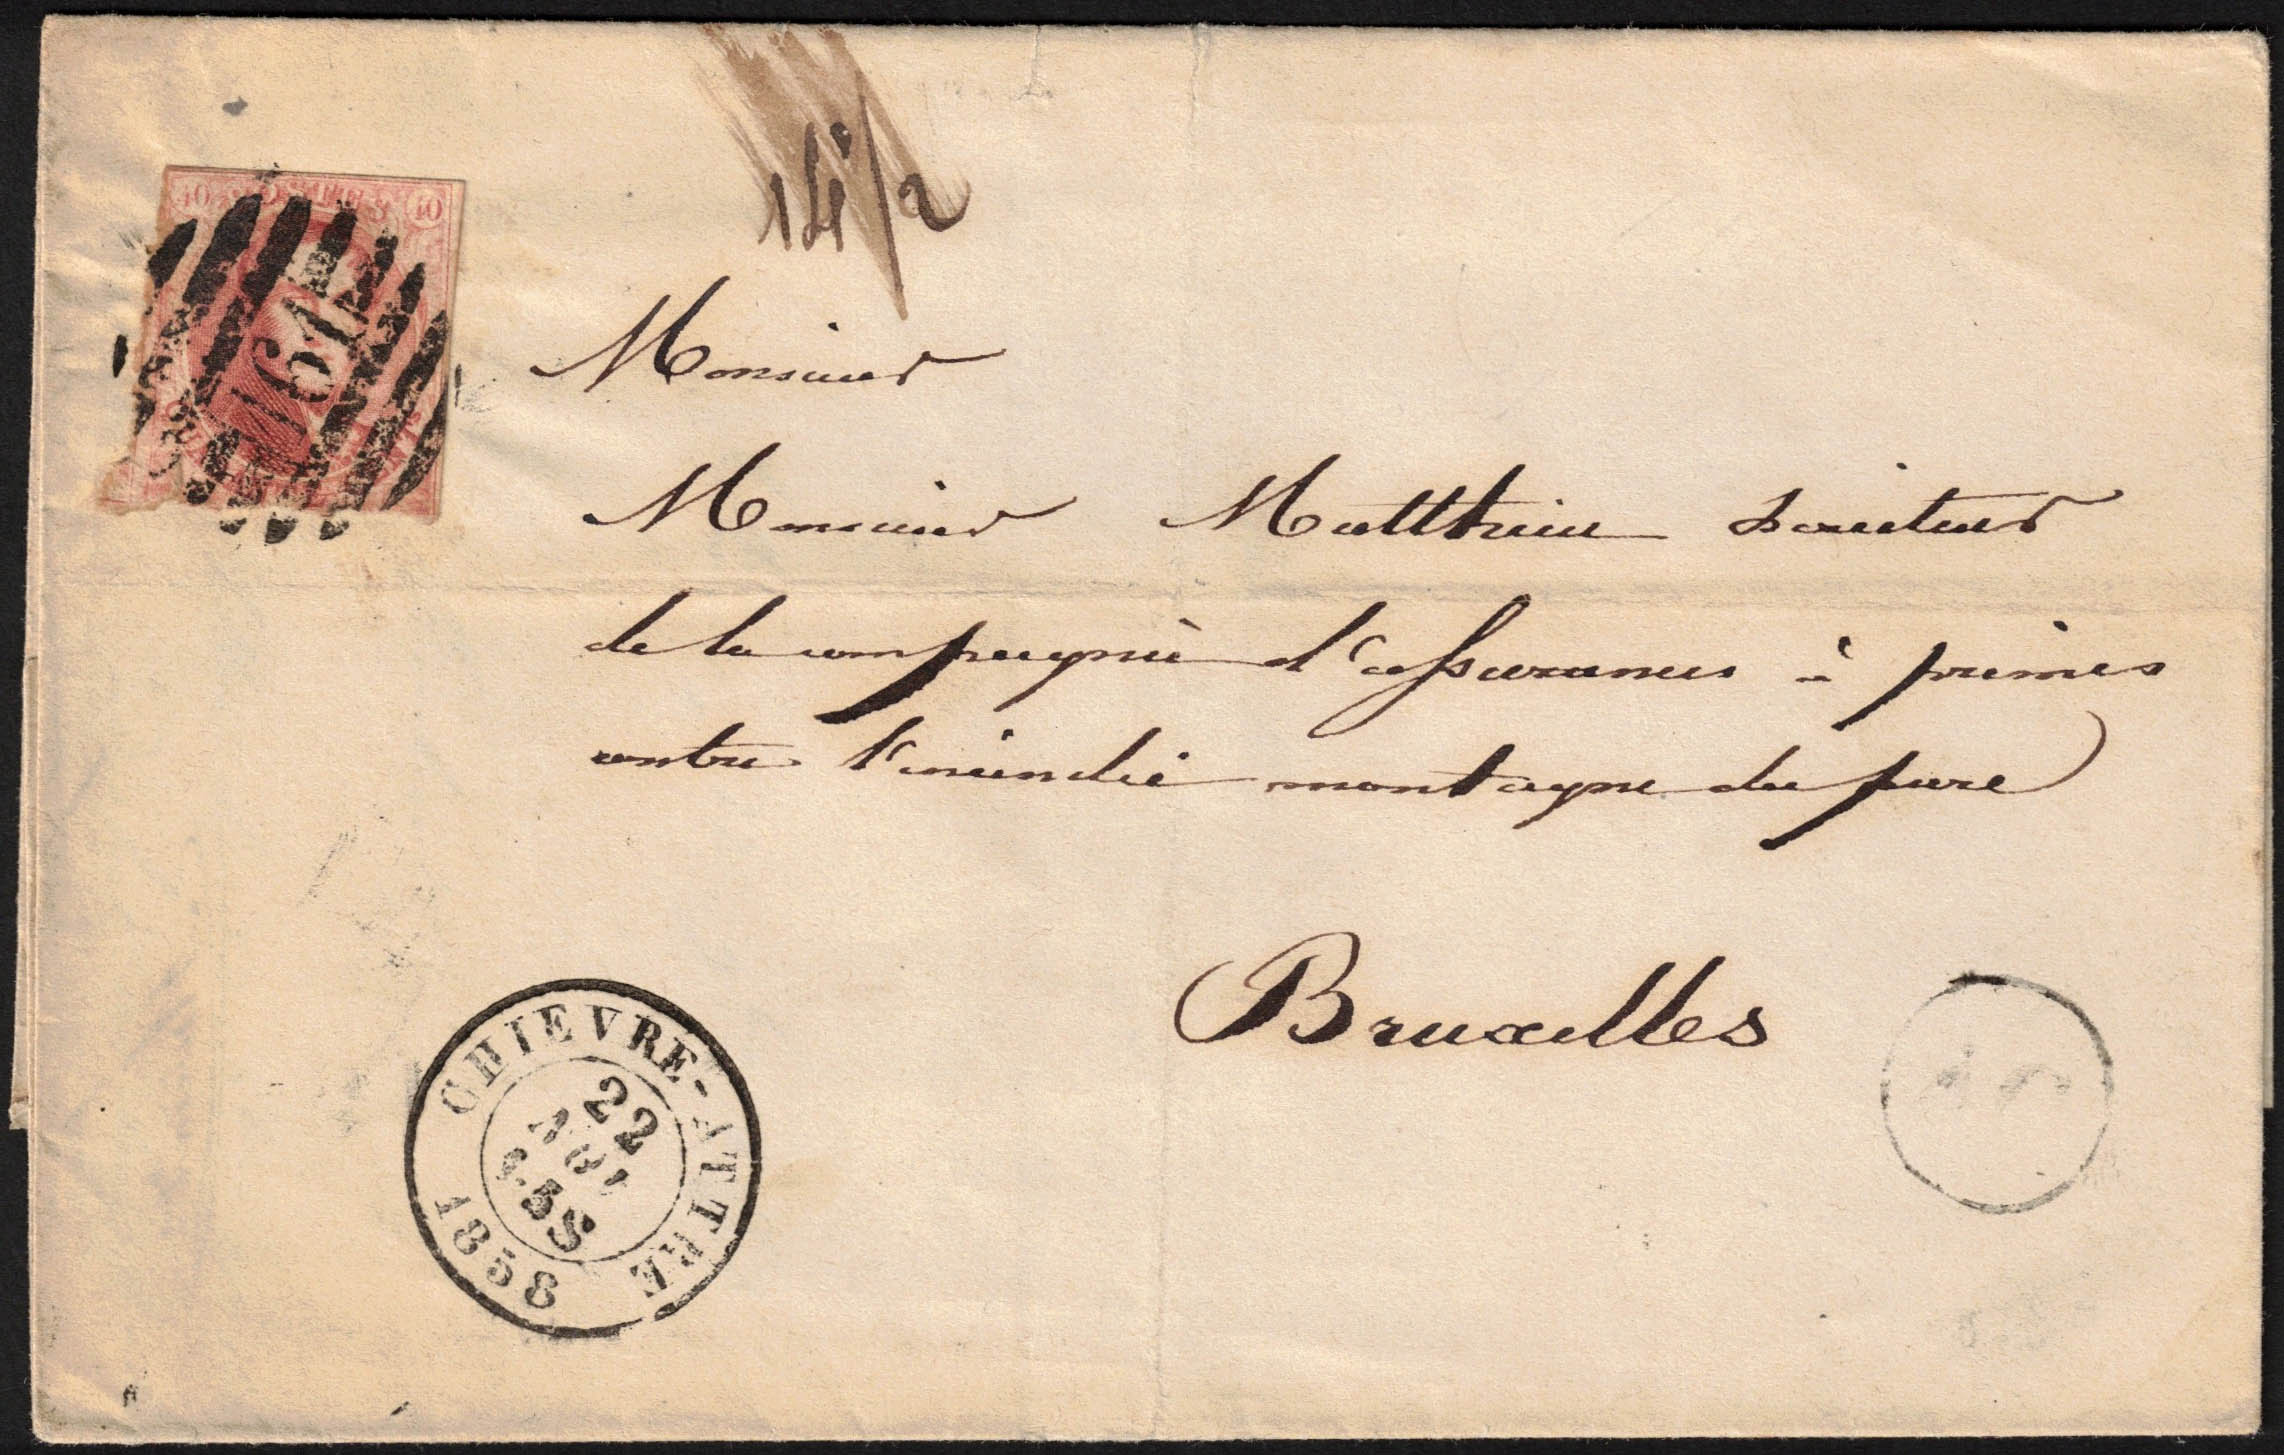 40 POSTES 40
161
14/2
Monsieur
Monsieur Matthieu
de la compagnie d'assurances à primes
contre l'incendie montagne du parc
Bruxelles
CHIEVRE-ATTRE
22
1858